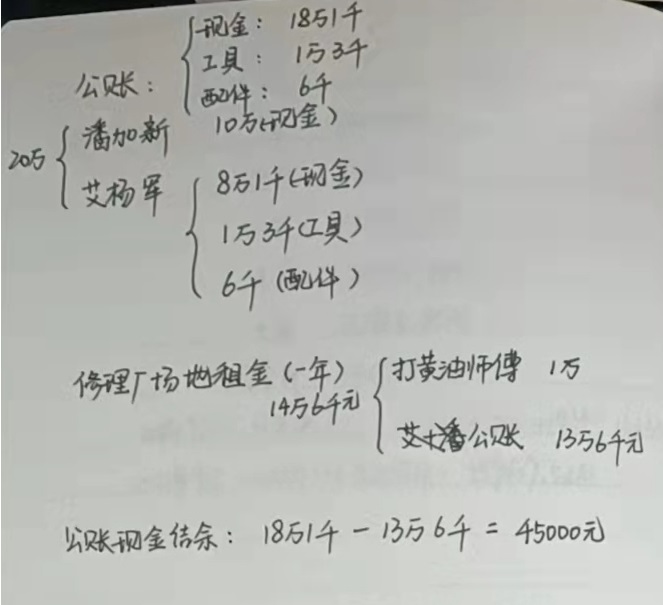 现金：18万1千
工具：1万3千
公账：
配件：6千
20万
潘加新 10万(现金)
艾杨军
8万1千(现金)
1万3千(工具)
6千(配件)
修理厂场地租金(一年)
14万6千元
打黄油师傅 1万
艾+潘公账 13万6千元
公账现金结余：18万1千－13万6千＝45000元